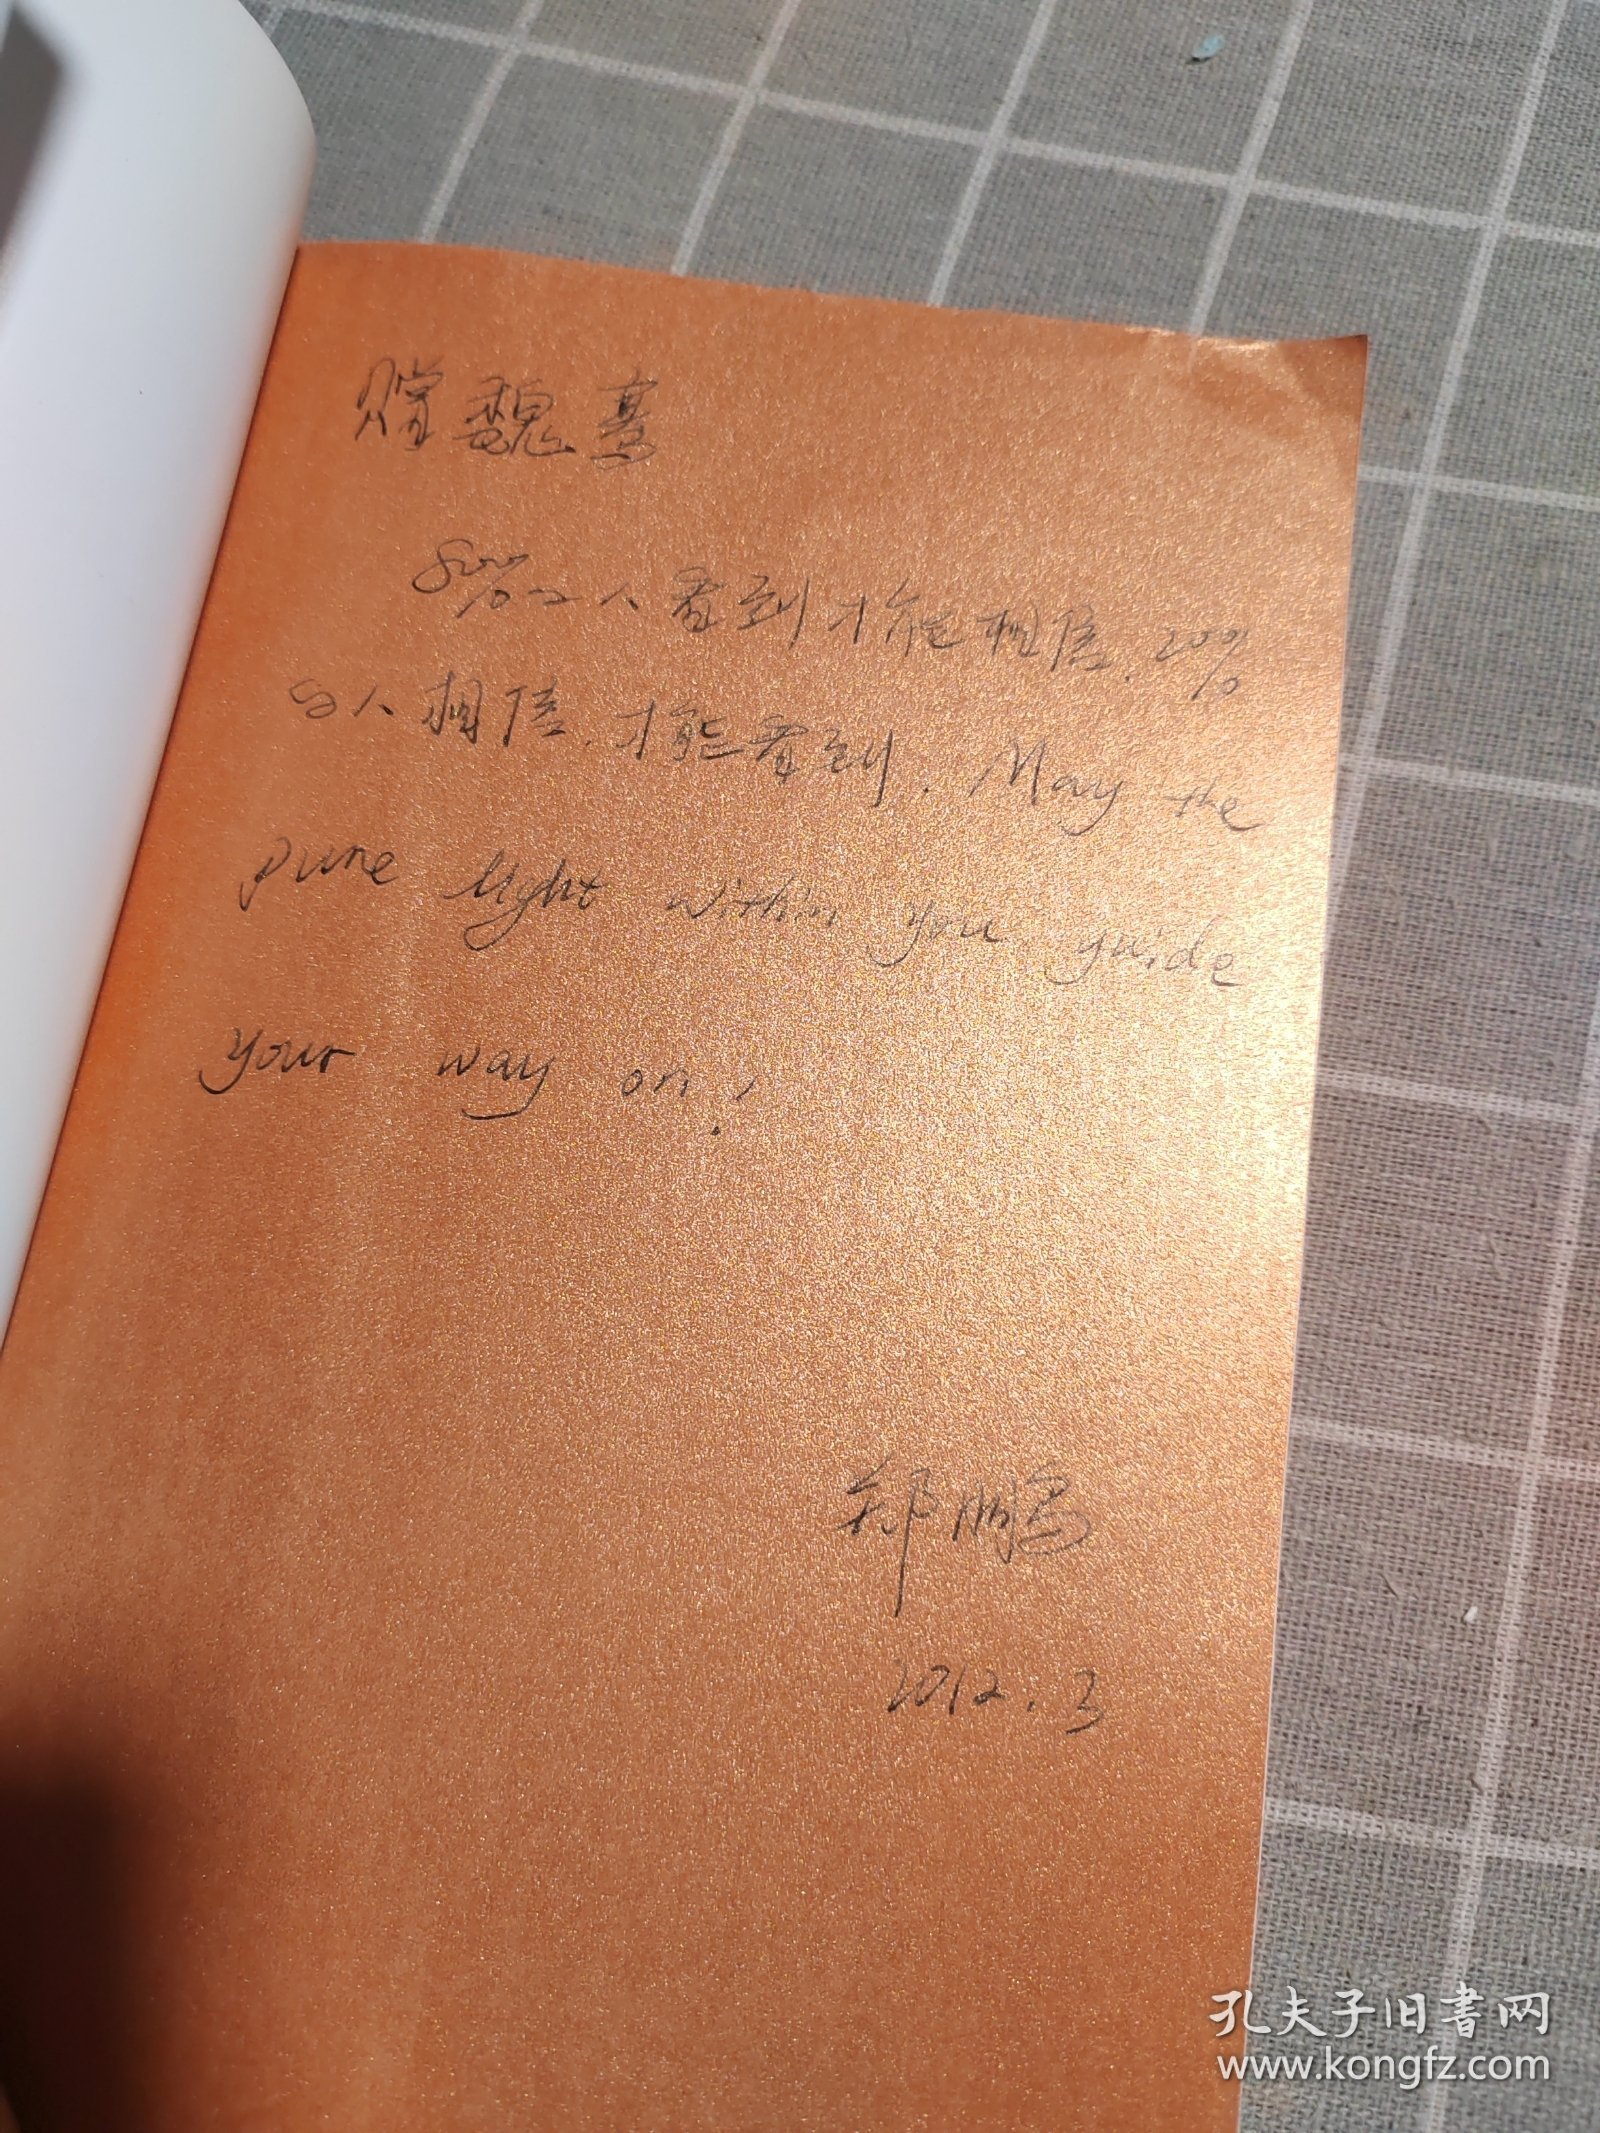 赠 魏
80%の人看到才能相信. 20%
の人相信. 才能看到. May the
pure light within you guide
your way on!
郑鹏
2012.3
孔夫子旧書网
www.kongfz.com